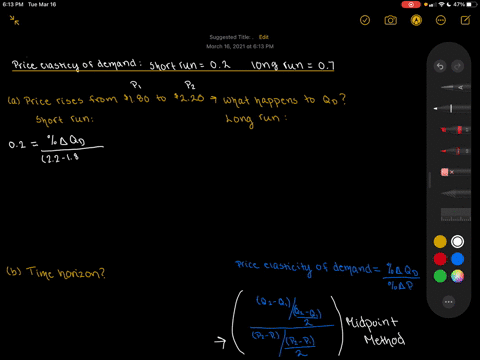 6:13 PM Tue Mar 16
47%
Suggested Title... Edit
March 16, 2021 at 6:13 PM
Price elasticity of demand: short run = 0.2 long run = 0.7
P₁ P₂
(a) Price rises from $1.80 to $2.20 → What happens to QD?
Short run: Long run:
0.2 = %ΔQD
(2.2-1.8
(b) Time horizon?
Price elasticity of demand = %ΔQD
%ΔP
(Q₂-Q₁)/(Q₂-Q₁)
2
(P₂-P₁)/(P₂-P₁)
2
→ Midpoint
Method